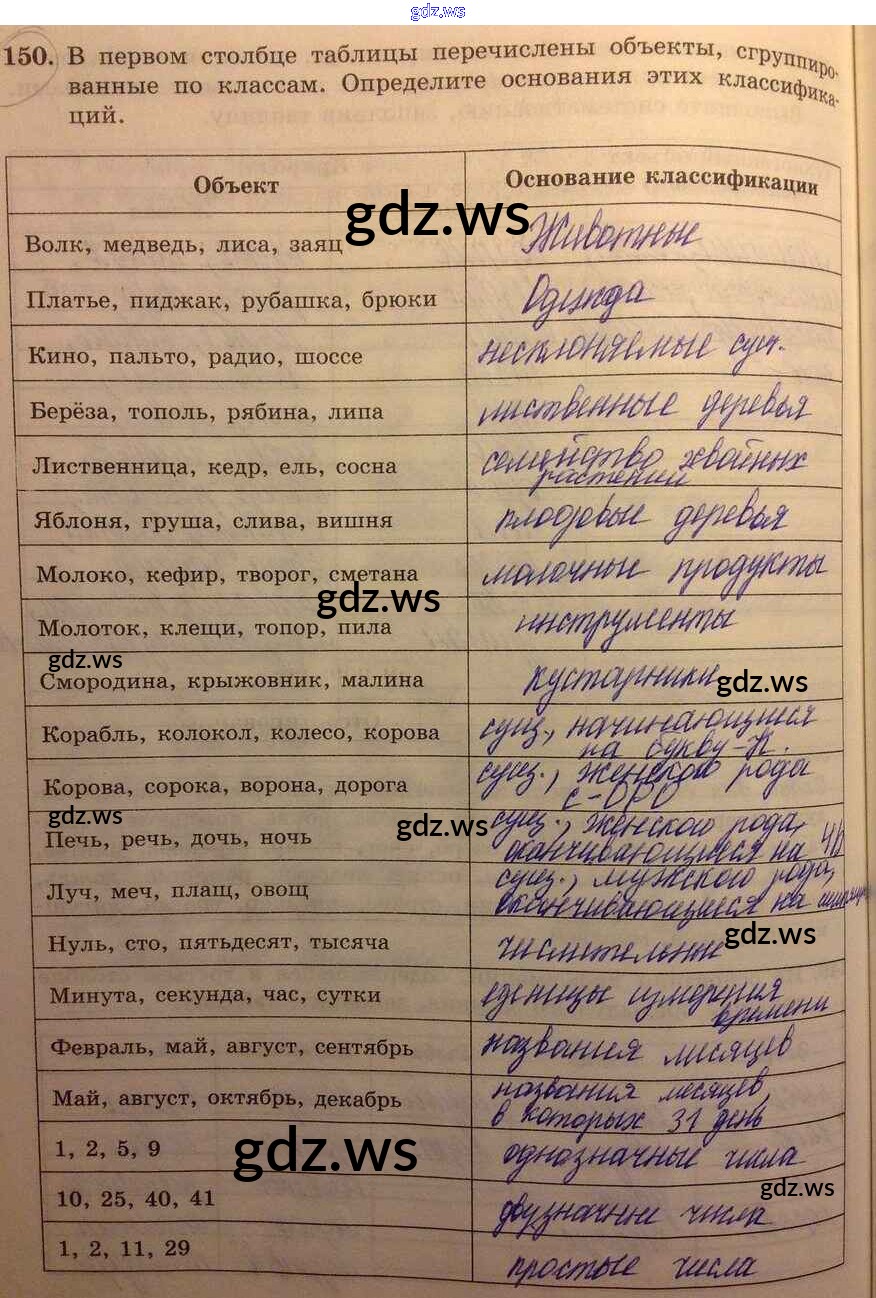 gdz.ws
150. В первом столбце таблицы перечислены объекты, сгруппиро-
ванные по классам. Определите основания этих классифика-
ций.
Объект
Основание классификации
gdz.ws
Волк, медведь, лиса, заяц
Животные
Платье, пиджак, рубашка, брюки
Одежда
Кино, пальто, радио, шоссе
несклоняемые сущ.
Берёза, тополь, рябина, липа
лиственные деревья
Лиственница, кедр, ель, сосна
семейство хвойных
растений
Яблоня, груша, слива, вишня
плодовые деревья
Молоко, кефир, творог, сметана
молочные продукты
gdz.ws
Молоток, клещи, топор, пила
инструменты
gdz.ws
Смородина, крыжовник, малина
кустарники
gdz.ws
Корабль, колокол, колесо, корова
сущ., начинающиеся
на букву -К.
Корова, сорока, ворона, дорога
сущ., женского рода
с -ОРО
gdz.ws
Печь, речь, дочь, ночь
gdz.ws
сущ., женского рода,
оканчивающиеся на чь
Луч, меч, плащ, овощ
сущ., мужского рода,
оканчивающиеся на
Нуль, сто, пятьдесят, тысяча
числительные
gdz.ws
Минута, секунда, час, сутки
еденицы измерения
времени
Февраль, май, август, сентябрь
названия месяцев
Май, август, октябрь, декабрь
названия месяцев,
в которых 31 день
1, 2, 5, 9
gdz.ws
однозначные числа
10, 25, 40, 41
двузначные числа
gdz.ws
1, 2, 11, 29
простые числа